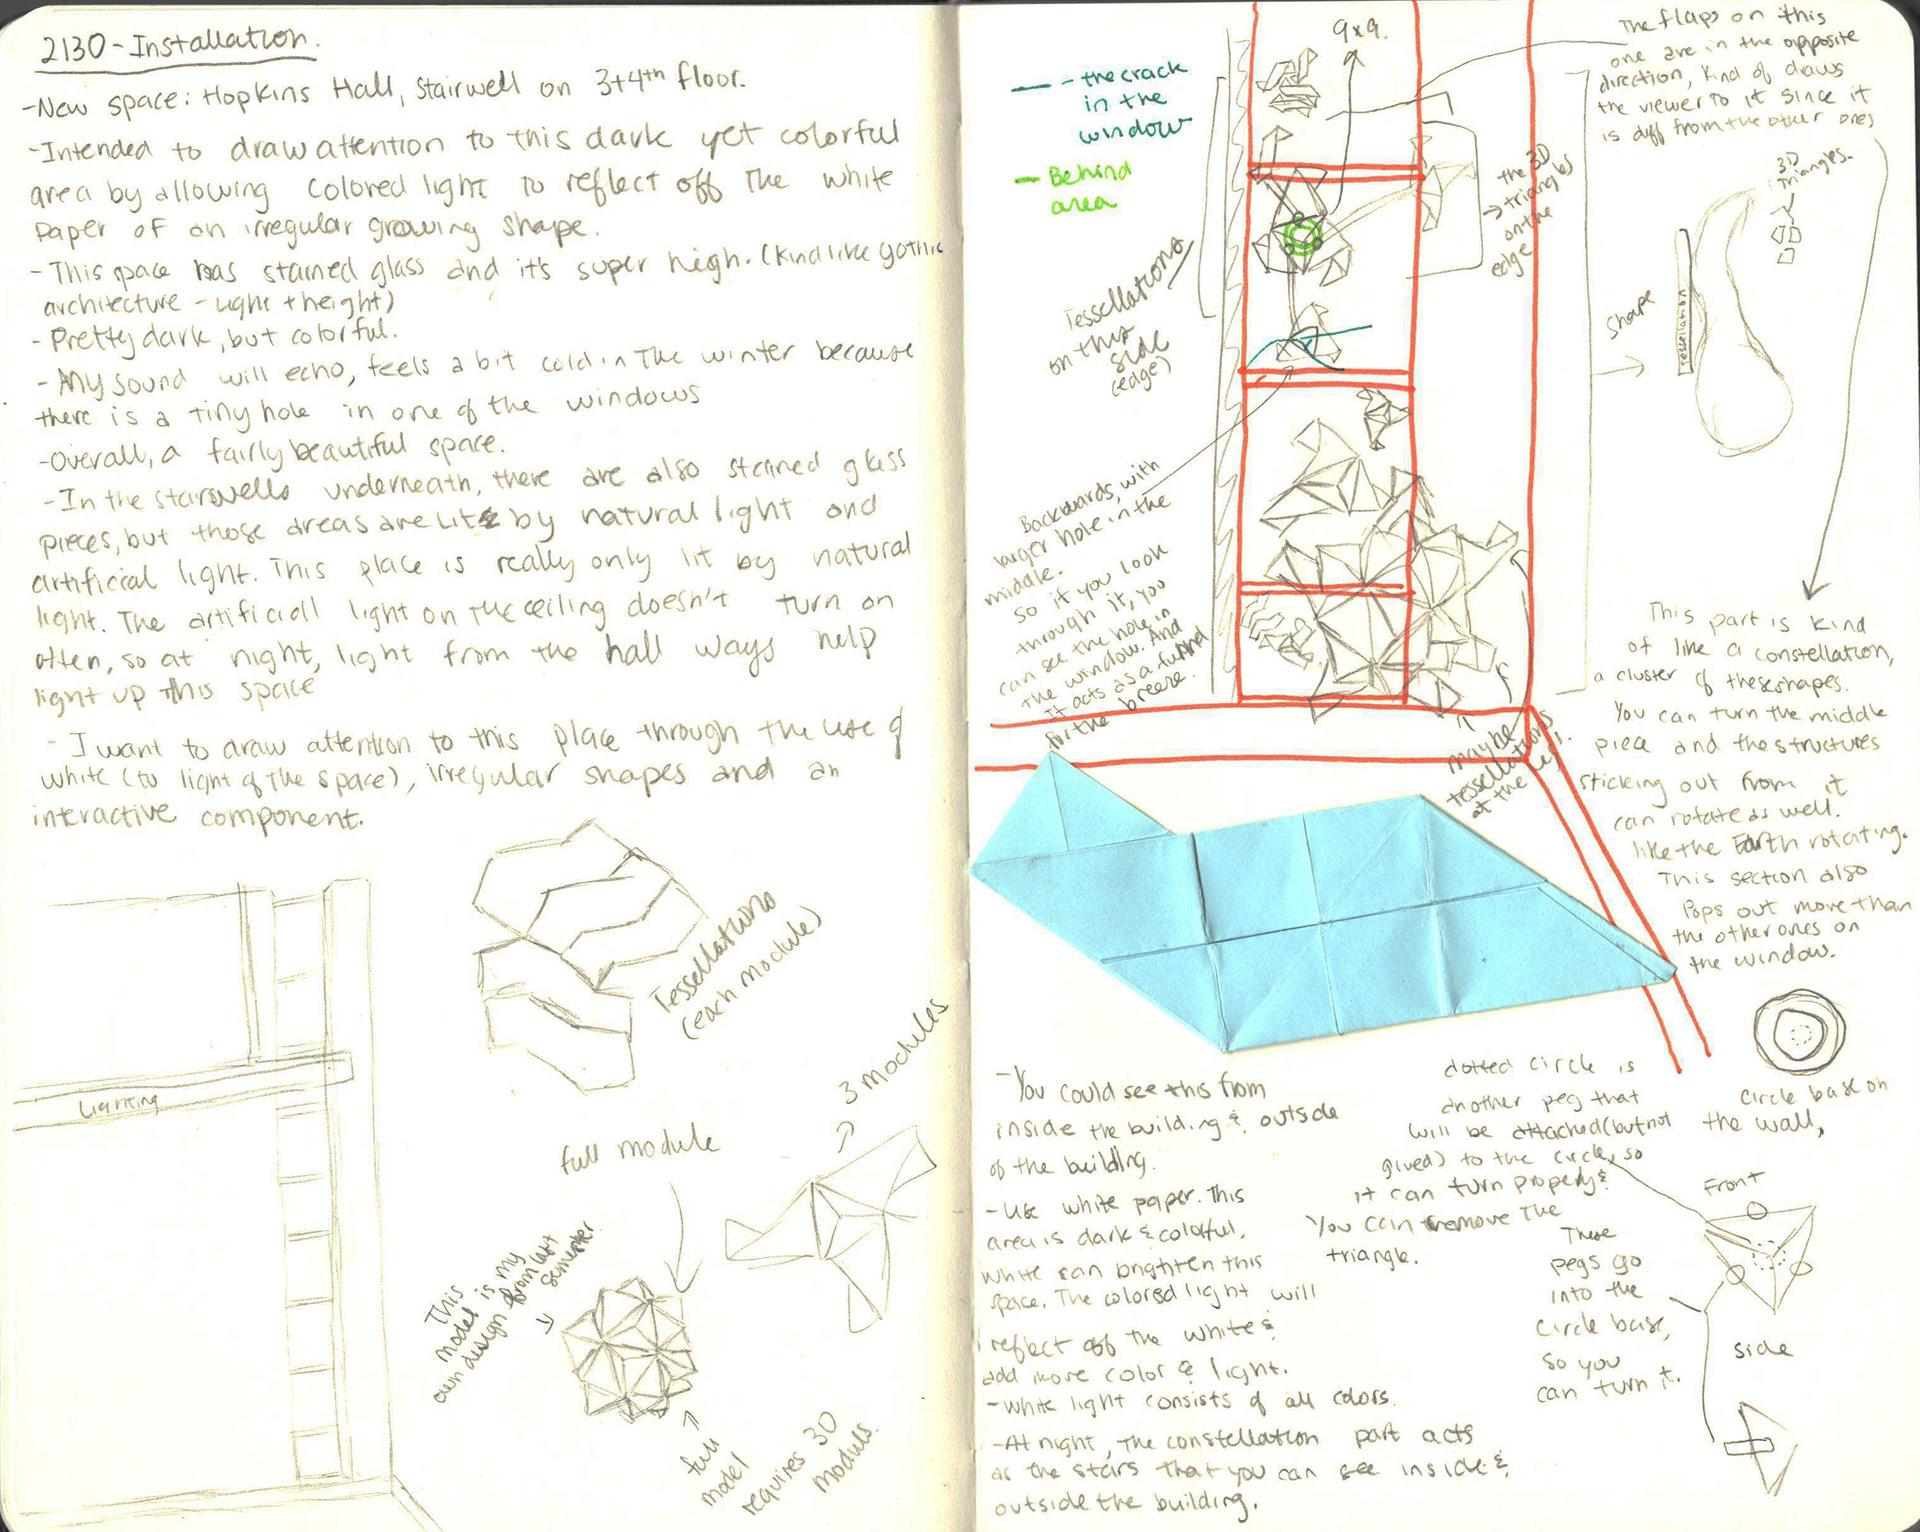 2130-Installation.
-New space: Hopkins Hall, Stairwell on 3+4th floor.
-Intended to draw attention to this dark yet colorful
area by allowing colored light to reflect off the white
paper of an irregular growing shape.
-This space has stained glass and it's super high. (kind like gothic
architecture - light + height)
-Pretty dark, but colorful.
-My sound will echo, feels a bit cold in the winter because
there is a tiny hole in one of the windows
-Overall, a fairly beautiful space.
-In the stairwells underneath, there are also stained glass
pieces, but those areas are lit by natural light and
artificial light. This place is really only lit by natural
light. The artificial light on the ceiling doesn't turn on
often, so at night, light from the hall ways help
light up this space
-I want to draw attention to this place through the use of
white (to light of the space), irregular shapes and an
interactive component.
Tessellations
(each module)
Lighting
full module
3 modules
This
model is my
own design from last
semester.
full
model
requires 30
moduls.
- the crack
in the
window
- Behind
area
9x9.
The flaps on this
one are in the opposite
direction, kind of draws
the viewer to it since it
is diff from the other ones
the 3D
triangles
on the
edge
3D
triangles.
Shape
Tessellation
Tessellations
on this
side
(edge)
Backwards, with
larger hole in the
middle.
so if you look
through it, you
can see the hole in
the window. And
it acts as a funnel
for the breeze.
maybe
tessellations
at the
This part is kind
of like a constellation,
a cluster of these shapes.
You can turn the middle
piece and the structures
sticking out from it
can rotate as well.
like the Earth rotating.
This section also
Pops out more than
the other ones on
the window.
-You could see this from
inside the building & outside
of the building.
-Use white paper. This
area is dark & colorful,
white can brighten this
space. The colored light will
reflect off the white &
add more color & light.
-White light consists of all colors.
-At night, the constellation part acts
as the stars that you can see inside &
outside the building.
dotted circle is
another peg that
will be attached (but not
glued) to the circle, so
it can turn properly &
You can remove the
triangle.
Circle base on
the wall,
Front
These
pegs go
into the
circle base,
so you
can turn it.
side